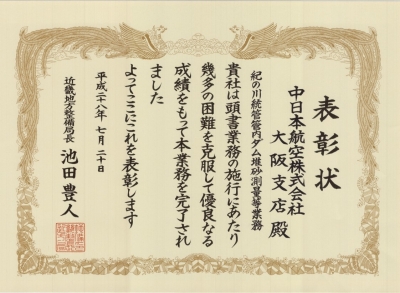 表彰状
中日本航空株式会社
大阪支店殿
紀の川統管管内ダム堆砂測量等業務
貴社は頭書業務の施行にあたり
幾多の困難を克服して優良なる
成績をもって本業務を完了され
ました
よってここにこれを表彰します
平成二十八年 七月 二十日
近畿地方整備局長 池田豊人